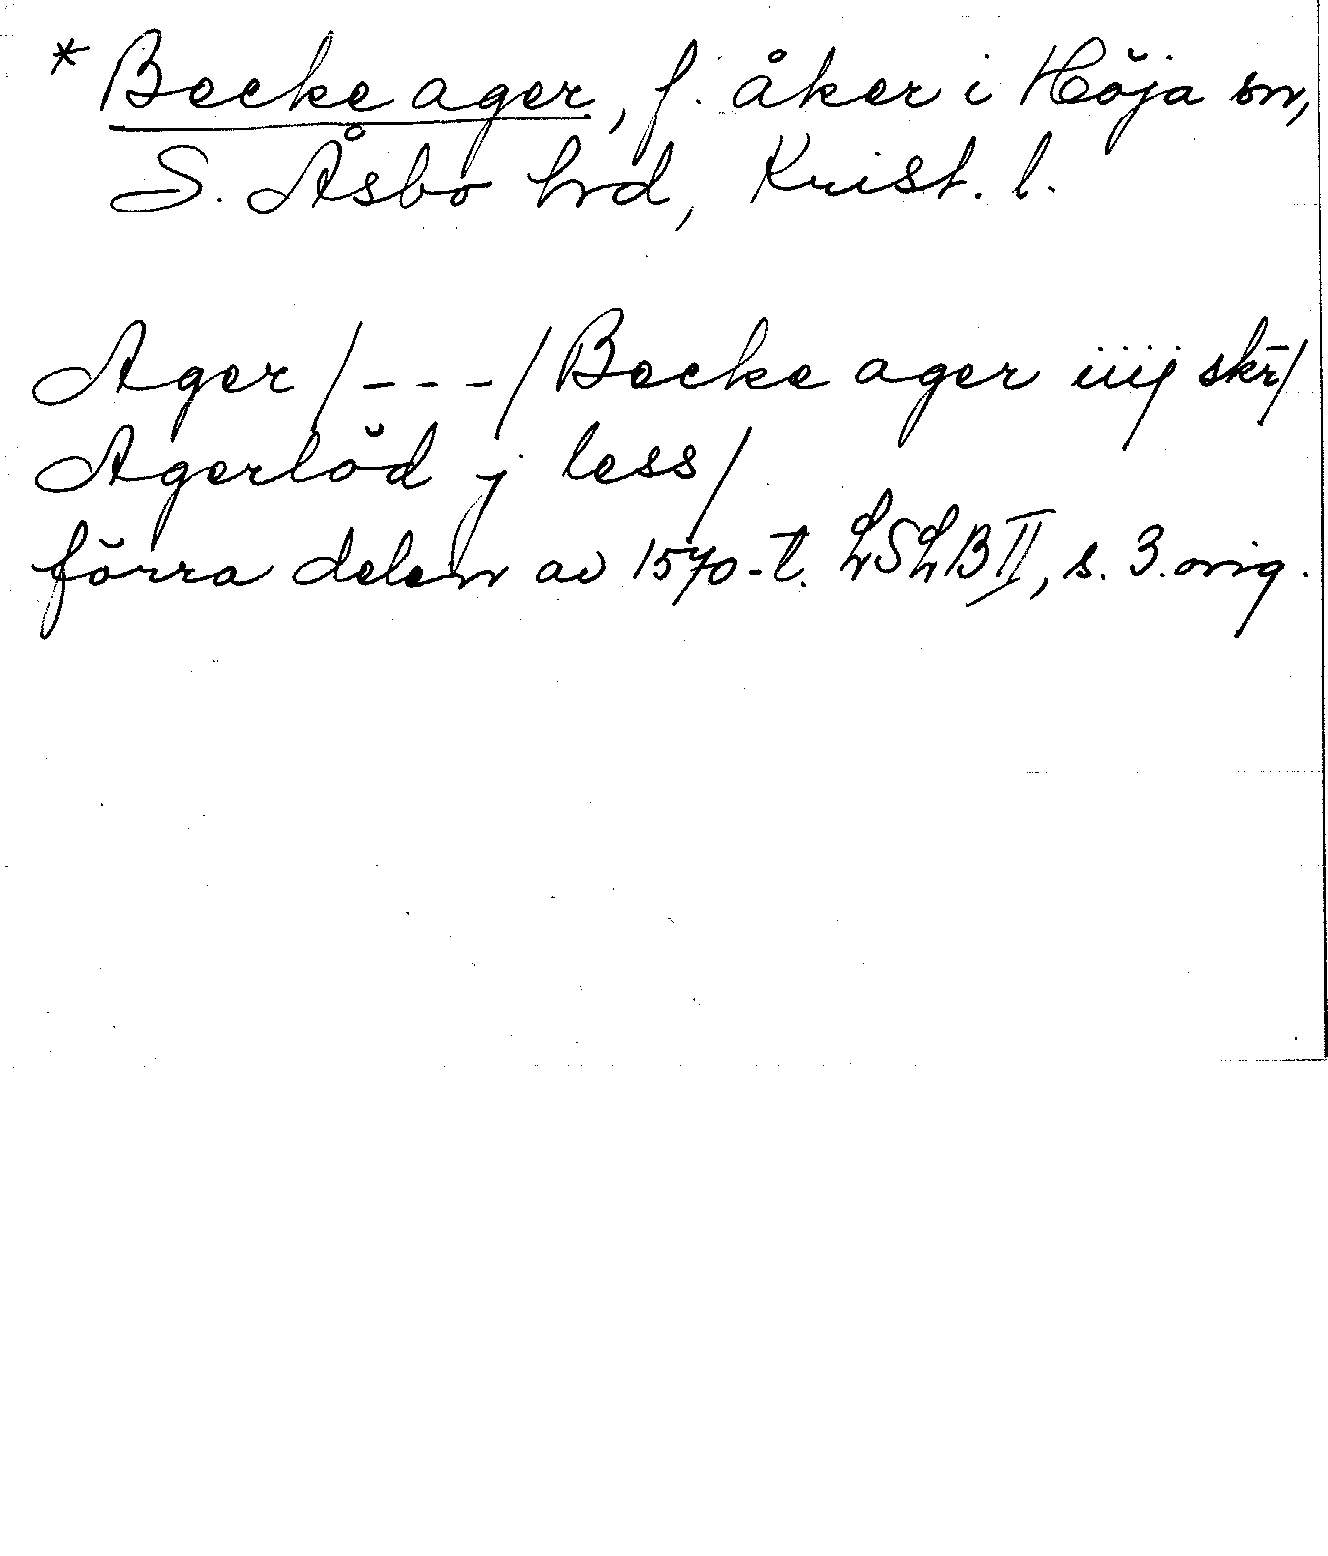 * Becke ager, f. åker i Höja sn,
S. Åsbo hrd, Krist. l.
Ager /---/ Becke ager iiij skr̄/
Agerlöd j less/
förra delen av 1570-t. LSLB II, s. 3. orig.